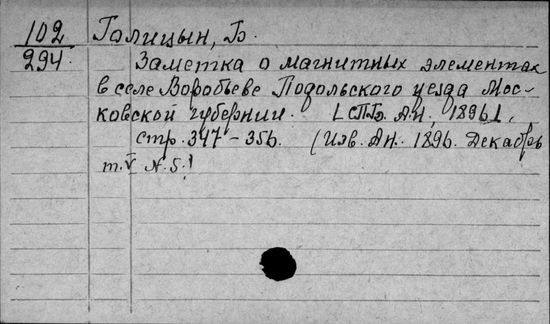 102 Голицын, Б.
294. Заметка о магнитных элементах
в селе Воробьеве Подольского уезда Мос-
ковской губернии. [СПБ. АН. 1896].
стр. 347-356. (Изв. АН. 1896. Декабрь
т. V N. 5.)